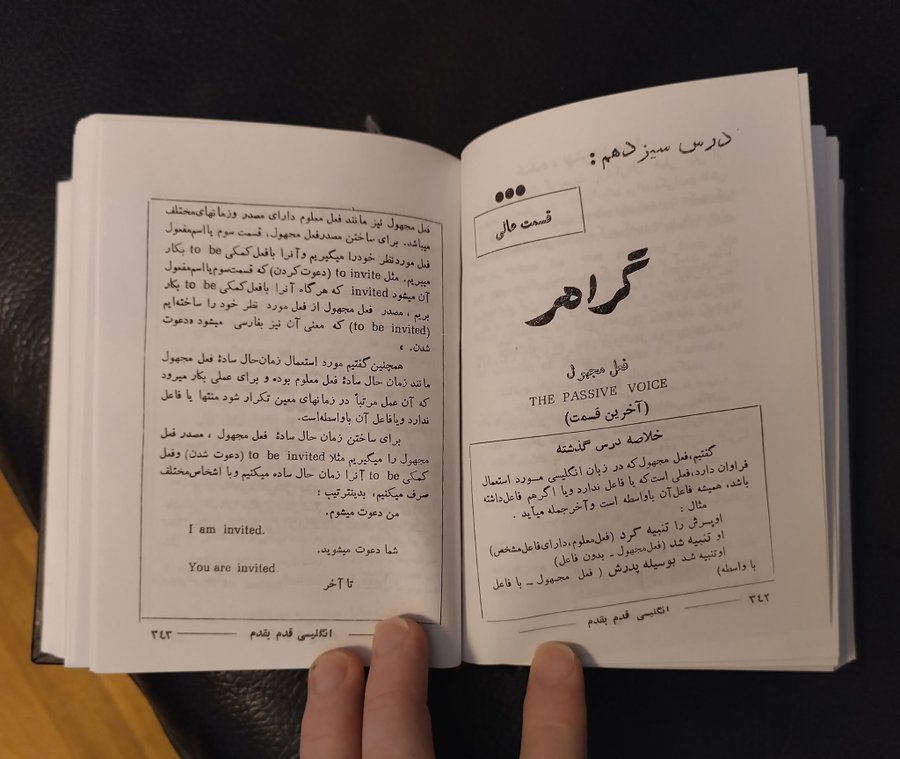 درس سیزدهم :
قسمت عالی
گرامر
فعل مجهول
THE PASSIVE VOICE
(آخرین قسمت)
خلاصه درس گذشته
گفتیم، فعل مجهول که در زبان انگلیسی مورد استعمال
فراوان دارد، فعلی است که یا فاعل ندارد ویا اگر هم فاعل داشته
باشد، همیشه فاعل آن باواسطه است وآخر جمله میآید .
مثال :
اوپسرش را تنبیه کرد (فعل معلوم، دارای فاعل مشخص)
او تنبیه شد (فعل مجهول ــ بدون فاعل)
اوتنبیه شد بوسیله پدرش ( فعل مجهول ــ با فاعل
با واسطه)
۳۴۲ انگلیسی قدم بقدم
فعل مجهول نیز مانند فعل معلوم دارای مصدر وزمانهای مختلف
میباشد. برای ساختن مصدر فعل مجهول، قسمت سوم یا اسم مفعول
فعل موردنظر خودرا میگیریم وآنرا بافعل کمکی to be بکار
میبریم. مثل to invite (دعوت کردن) که قسمت سوم یا اسم مفعول
آن میشود invited که هرگاه آنرا بافعل کمکی to be بکار
بریم ، مصدر فعل مجهول از فعل مورد نظر خود را ساخته‌ایم
(to be invited) که معنی آن نیز بفارسی میشود «دعوت
شدن. »
همچنین گفتیم مورد استعمال زمان حال سادۀ فعل مجهول
مانند زمان حال سادۀ فعل معلوم بوده و برای عملی بکار میرود
که آن عمل مرتباً در زمانهای معین تکرار شود منتها یا فاعل
ندارد ویا فاعل آن باواسطه است.
برای ساختن زمان حال سادۀ فعل مجهول ، مصدر فعل
مجهول را میگیریم مثلا to be invited (دعوت شدن) وفعل
کمکی to be آنرا زمان حال ساده میکنیم وبا اشخاص مختلف
صرف میکنیم، بدینترتیب :
من دعوت میشوم.
I am invited.
شما دعوت میشوید.
You are invited.
تا آخر
انگلیسی قدم بقدم ۳۴۳